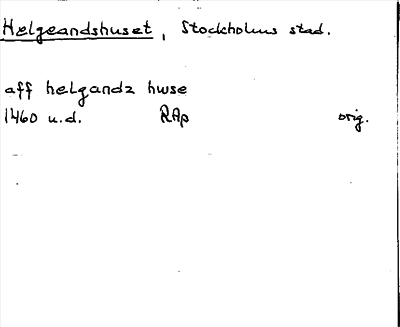 Helgeandshuset, Stockholms stad.
aff helgandz hwse
1460 u.d. RAp orig.